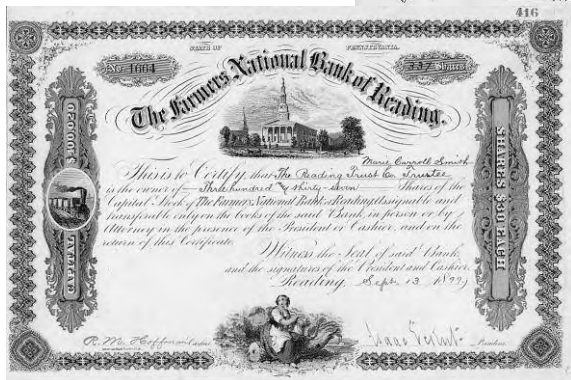 416
STATE OF PENNSYLVANIA.
No. 1664
337 Shares
The Farmers National Bank of Reading.
Marie Carroll Smith
This is to Certify, that The Reading Trust Co. Trustee
is the owner of Three hundred & thirty seven Shares of the
Capital Stock of The Farmers National Bank of Reading, Assignable and
transferable only on the books of the said Bank, in person or by
Attorney in the presence of the President or Cashier, and on the
return of this Certificate.
Witness the Seal of said Bank,
and the signatures of the President and Cashier.
Reading, Sept. 13 1899
Cashier
President
CAPITAL
SHARES $30 EACH